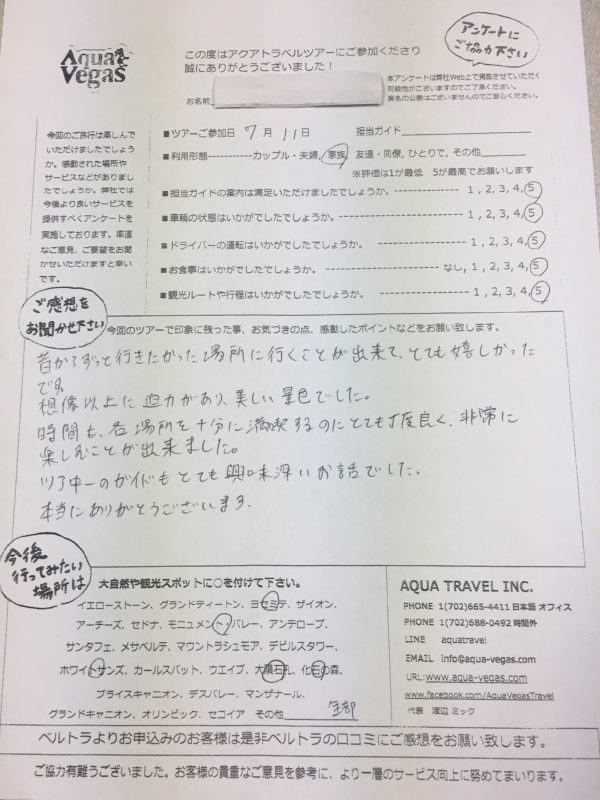 Aqua Vegas
この度はアクアトラベルツアーにご参加くださり
誠にありがとうございました！
アンケートに
ご協力下さい
本アンケートは弊社Web上で掲載させていただく
可能性がございますのでご了承ください。
実名の公表はございませんのでご安心ください。
お名前
今回のご旅行は楽しんで
いただけましたでしょう
か。感動された場所や
サービスなどがありまし
たでしょうか。弊社では
今後より良いサービスを
提供すべくアンケートを
実施しております。率直
なご意見、ご要望をお聞
かせいただけますと幸い
です。
■ツアーご参加日 7月 11日 担当ガイド
■利用形態-----------カップル・夫婦, 家族, 友達・同僚, ひとりで, その他
※評価は1が最低 5が最高でお願いします
■担当ガイドの案内は満足いただけましたでしょうか。--------------- 1 , 2, 3, 4, 5
■車輌の状態はいかがでしたでしょうか。------------------------- 1 , 2, 3, 4, 5
■ドライバーの運転はいかがでしたでしょうか。-------------------- 1 , 2, 3, 4, 5
■お食事はいかがでしたでしょうか。------------------------ なし, 1, 2, 3, 4, 5
■観光ルートや行程はいかがでしたでしょうか。------------------- 1 , 2, 3, 4, 5
ご感想を
お聞かせ下さい
今回のツアーで印象に残った事、お気づきの点、感動したポイントなどをお願い致します。
昔からずっと行きたかった場所に行くことが出来て、とても嬉しかった
です。
想像以上に迫力があり、美しい景色でした。
時間も、各場所を十分に満喫するのにとても丁度良く、非常に
楽しむことが出来ました。
ツアー中のガイドもとても興味深いお話でした。
本当にありがとうございます。
今後
行ってみたい
場所は
大自然や観光スポットに○を付けて下さい。
イエローストーン、グランドティートン、ヨセミテ、ザイオン、
アーチーズ、セドナ、モニュメントバレー、アンテロープ、
サンタフェ、メサベルテ、マウントラシュモア、デビルスタワー、
ホワイトサンズ、カールスバット、ウエイブ、大隕石孔、化石の森、
ブライスキャニオン、デスバレー、マンザナール、
グランドキャニオン、オリンピック、セコイア その他 全部
AQUA TRAVEL INC.
PHONE 1(702)665-4411 日本語 オフィス
PHONE 1(702)688-0492 時間外
LINE aquatravel
EMAIL info@aqua-vegas.com
URL:www.aqua-vegas.com
www.facebook.com/AquaVegasTravel
代表 渡辺 ミック
ベルトラよりお申込みのお客様は是非ベルトラの口コミにご感想をお願い致します。
ご協力有難うございました。お客様の貴重なご意見を参考に、より一層のサービス向上に努めてまいります。